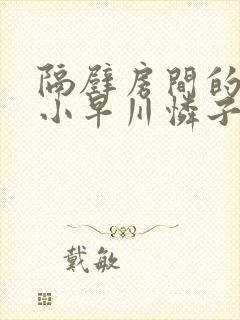 隔壁房間的
小早川憐子
戴敏